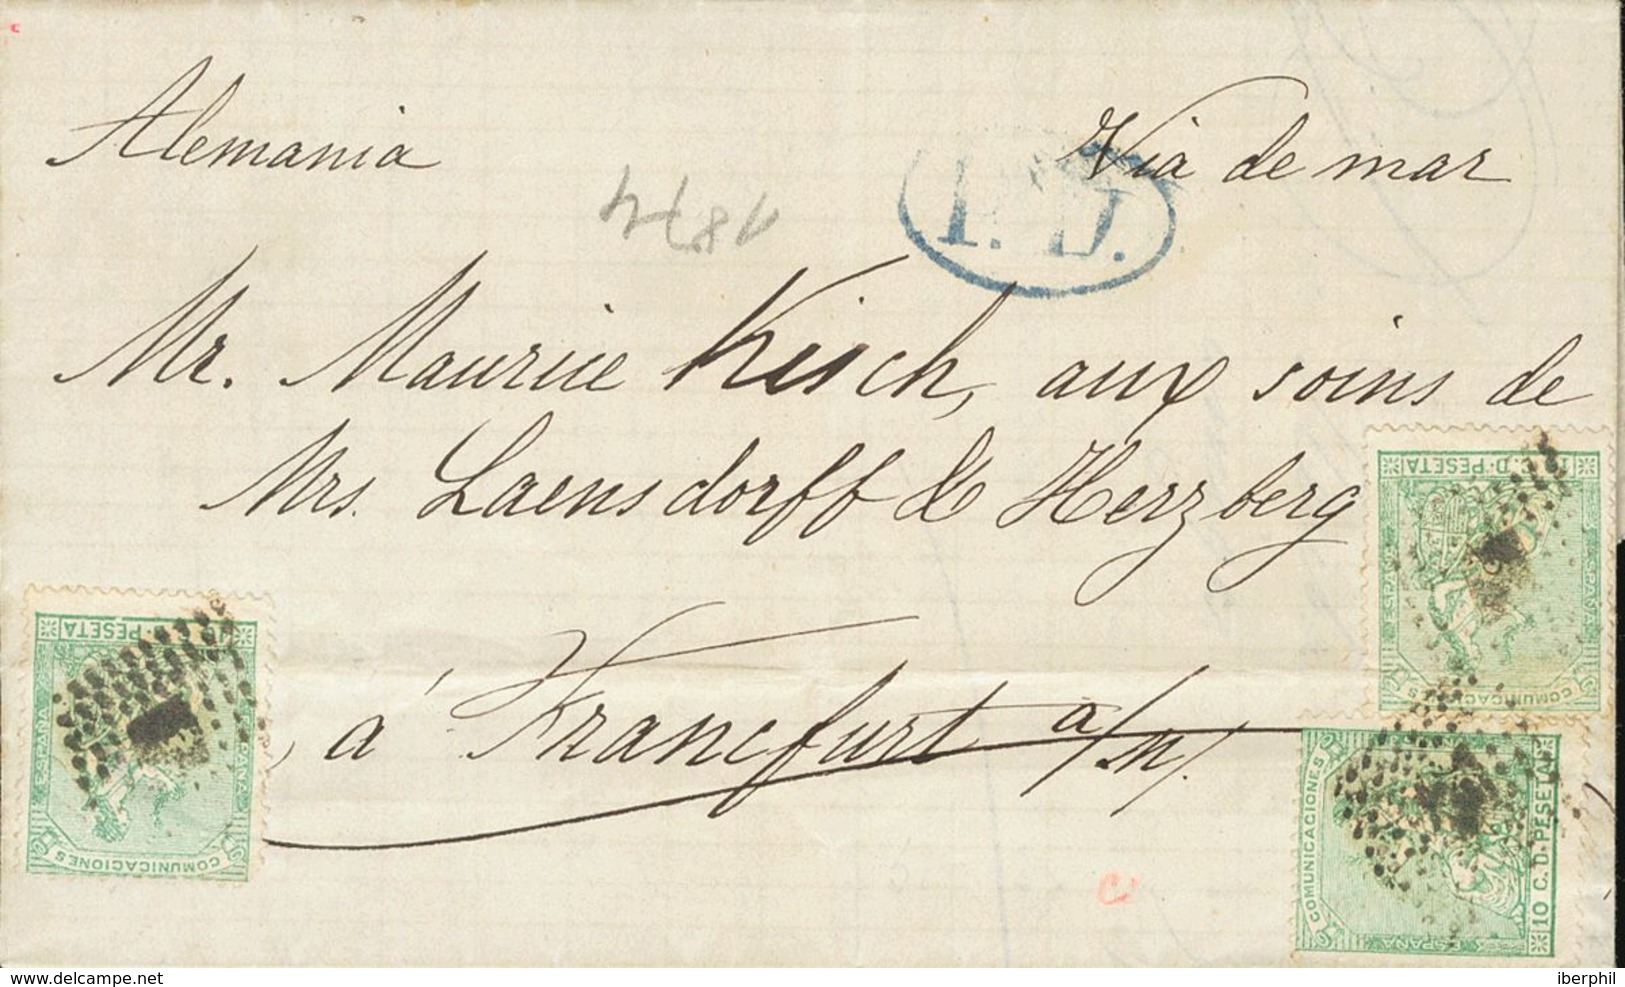 Alemania
Via de mar
1874
P.D.
Mr. Maurice Kisch, aux soins de
Mrs. Laensdorff & Herzberg
, à Francfurt a/M/.
PESETA
ESPAÑA
ESPAÑA
COMUNICACIONES
C. D. PESETA
ESPAÑA
ESPAÑA
COMUNICACIONES
COMUNICACIONES
ESPAÑA
10 C. D. PESETA
iberphil